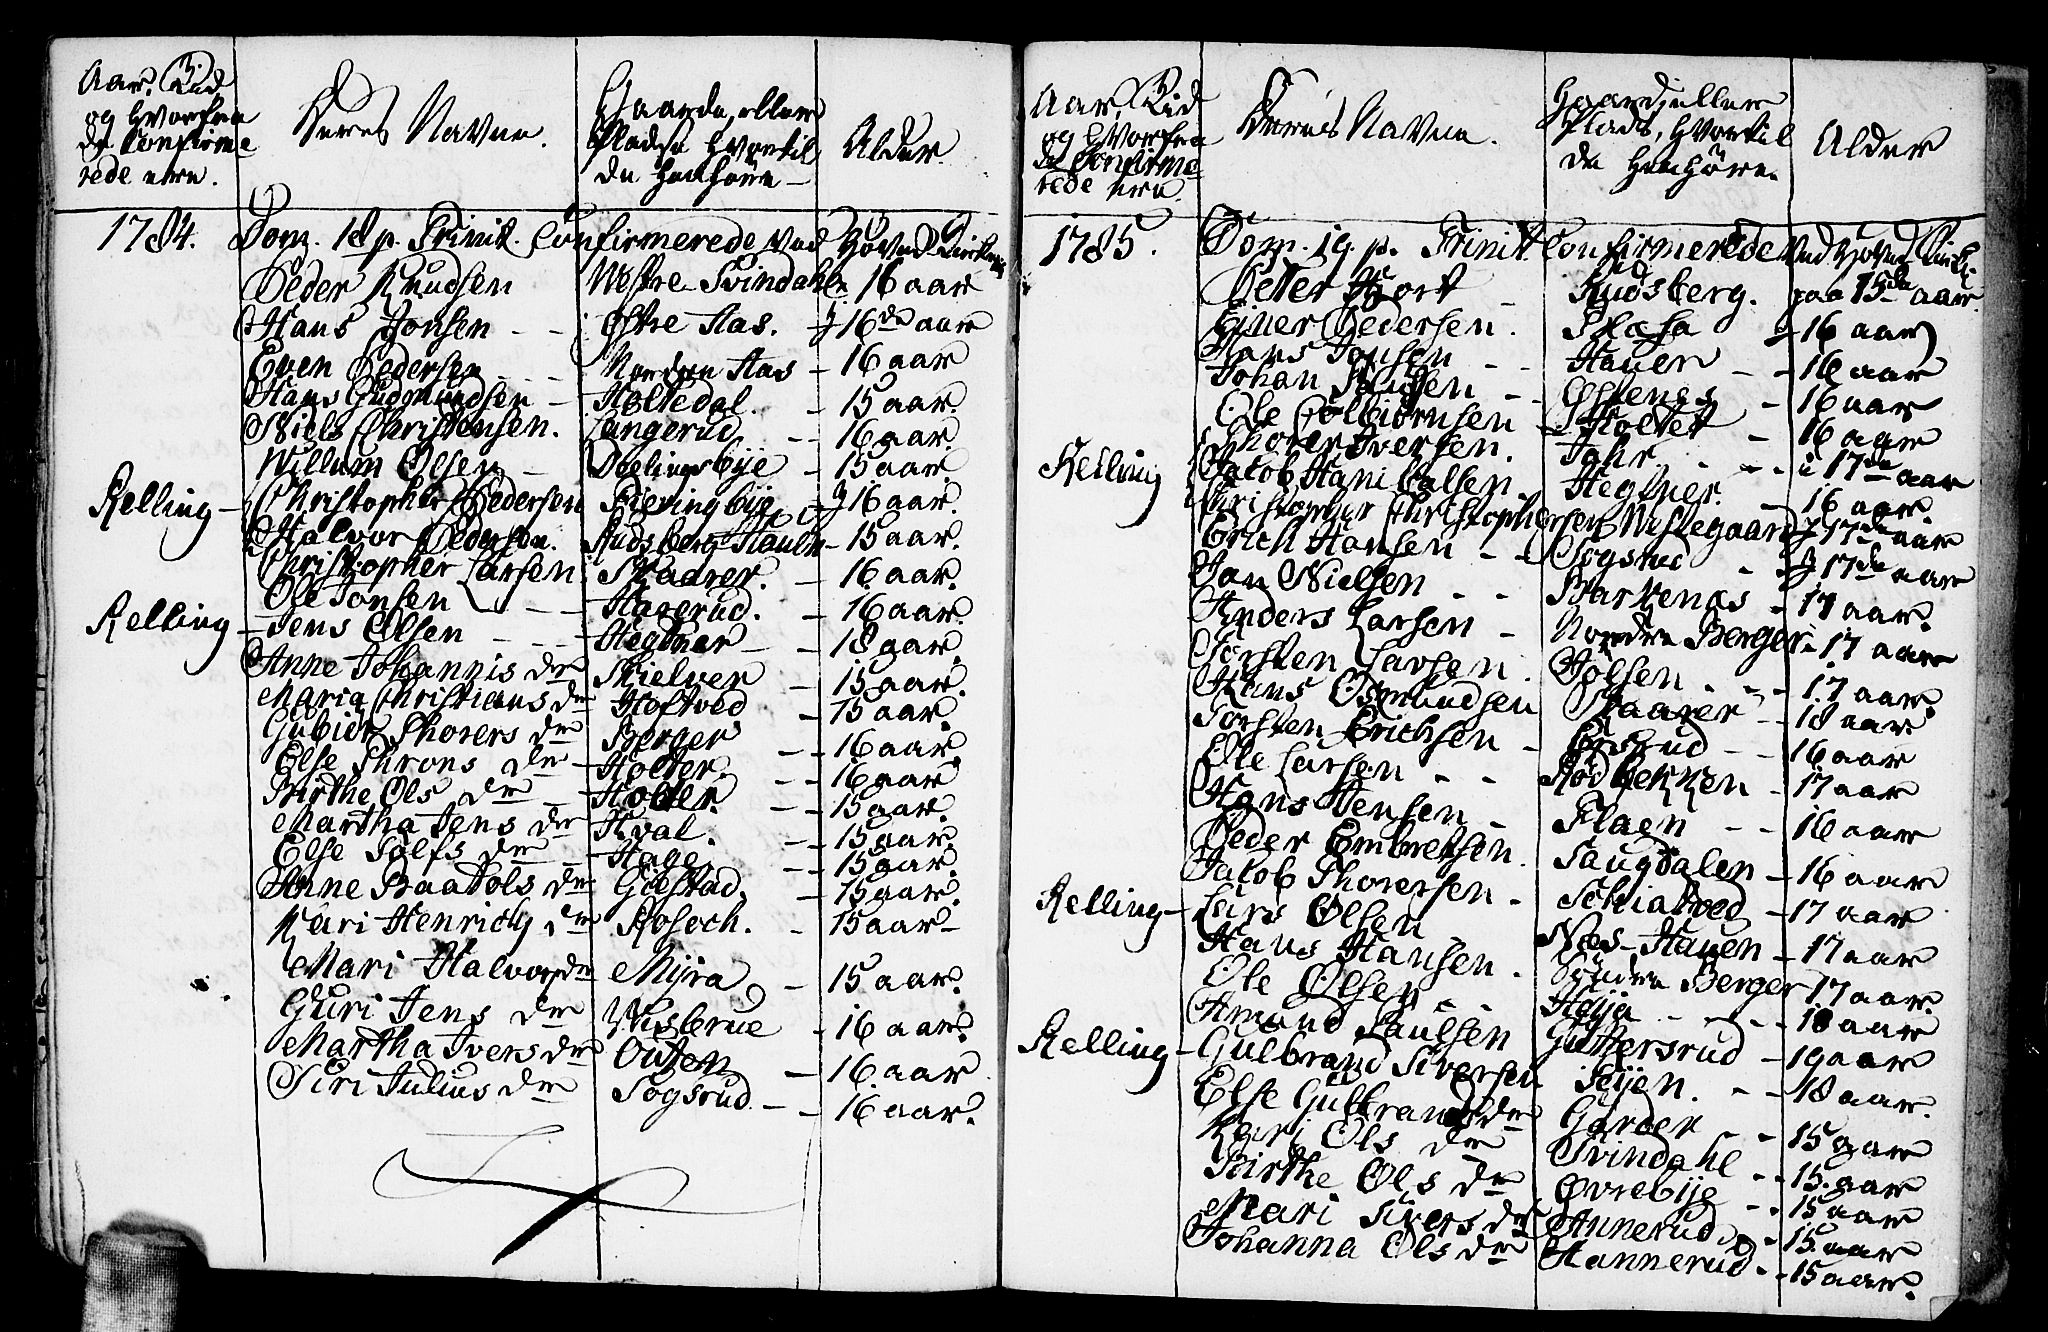 Aar, Tid
og Hvorfra
de Confirme
rede ere.
Deres Navne.
Gaarde, eller
Pladse Hvortil
de Henhöre
Alder
1784.
Dom. 18 p. Trinit. Confirmerede ved Hoved Kirken
Peder Knudsen Westre Svindahl 16 aar
Hans Jonsen Østre Aas. J 16de aar
Even Pedersen Nordre Aas 16 aar
Hans Gudmundsen Holtedal. 15 aar.
Niels Christensen. Langerud 16 aar.
Willum Olsen Doelingsbÿe 15 aar
Kelling Christopher Pedersen J 16 aar.
Halvor Pedersen. Rudsberg Hauen 15 aar.
Christopher Larsen Skaarer. 16 aar.
Ole Jonsen Haverud. 16 aar.
Kelling Jens Olsen Hegtner 18 aar.
Anne Johannis dr Skielver 15 aar.
Maria Christians dr Hoftved 15 aar.
Gubiör Thorers dr Berger 16 aar.
Else Throns dr Holter. 16 aar
Birthe Ols dr Holter. 15 aar.
Martha Jens dr Hval. 15 aar.
Else Tolfs dr Hage. 15 aar.
Anne Baarols dr Gierstad. 15 aar.
Kari Henrichs dr Roseth. 15 aar
Mari Halvors dr Mÿra 15 aar.
Guri Jens dr 16 aar.
Martha Ivers dr Outen 16 aar
Siri Julius dr Sogsrud 16 aar.
Aar, Tid
og Hvorfra
de Confirme-
rede ere.
Deres Navne.
Gaard, eller
Plads, Hvortil
de Henhöre.
Alder
1785.
Dom. 19. p. Trinit. Confirmerede ved Hoved Kirk:
Peter Hiort Rudsberg. paa 15de aar.
Einer Pedersen. J 16 aar
Hans Jonsen Hauer 16 aar
Johan Østenes 16 aar
Ole Colbiörnsen Holter 16 aar
Kelling Thorer Iversen. Jahr i 17de aar
Jakob Hanibalsen Hegtner. 16 aar.
Christopher Christophersen Nistegaard J 17de aar
Erich Hansen Sogsrud J 17de aar
Jan Nielsen Barkenæs 17 aar.
Anders Larsen Nordre Berger 17 aar
Torsten Larsen. Tolsen 17 aar.
Hans Osmundsen Skaarer 18 aar.
Torsten Erichsen 16 aar
Ole Larsen Rodbekken 17 aar
Hans Jensen Flaen 16 aar
Peder Embretsen. Saugdalen 16 aar
Jakob Thorersen Schiatved 17 aar
Kelling Lars Olsen Næs-Hauen 17 aar
Hans Hansen Söndre Berger 17 aar.
Ole Olsen Heÿa 18 aar
Amund Paulsen Guttersrud 19 aar
Kelling Gulbrand Siversen 18 aar.
Else Gulbrands dr Garder 15 aar
Kari Ols dr Svindahl 15. aar
Birthe Ols dr Øvrebÿe 15 aar
Mari Sivers dr Annerud 15. aar
Johanna Ols dr Hannerud 15 aar.